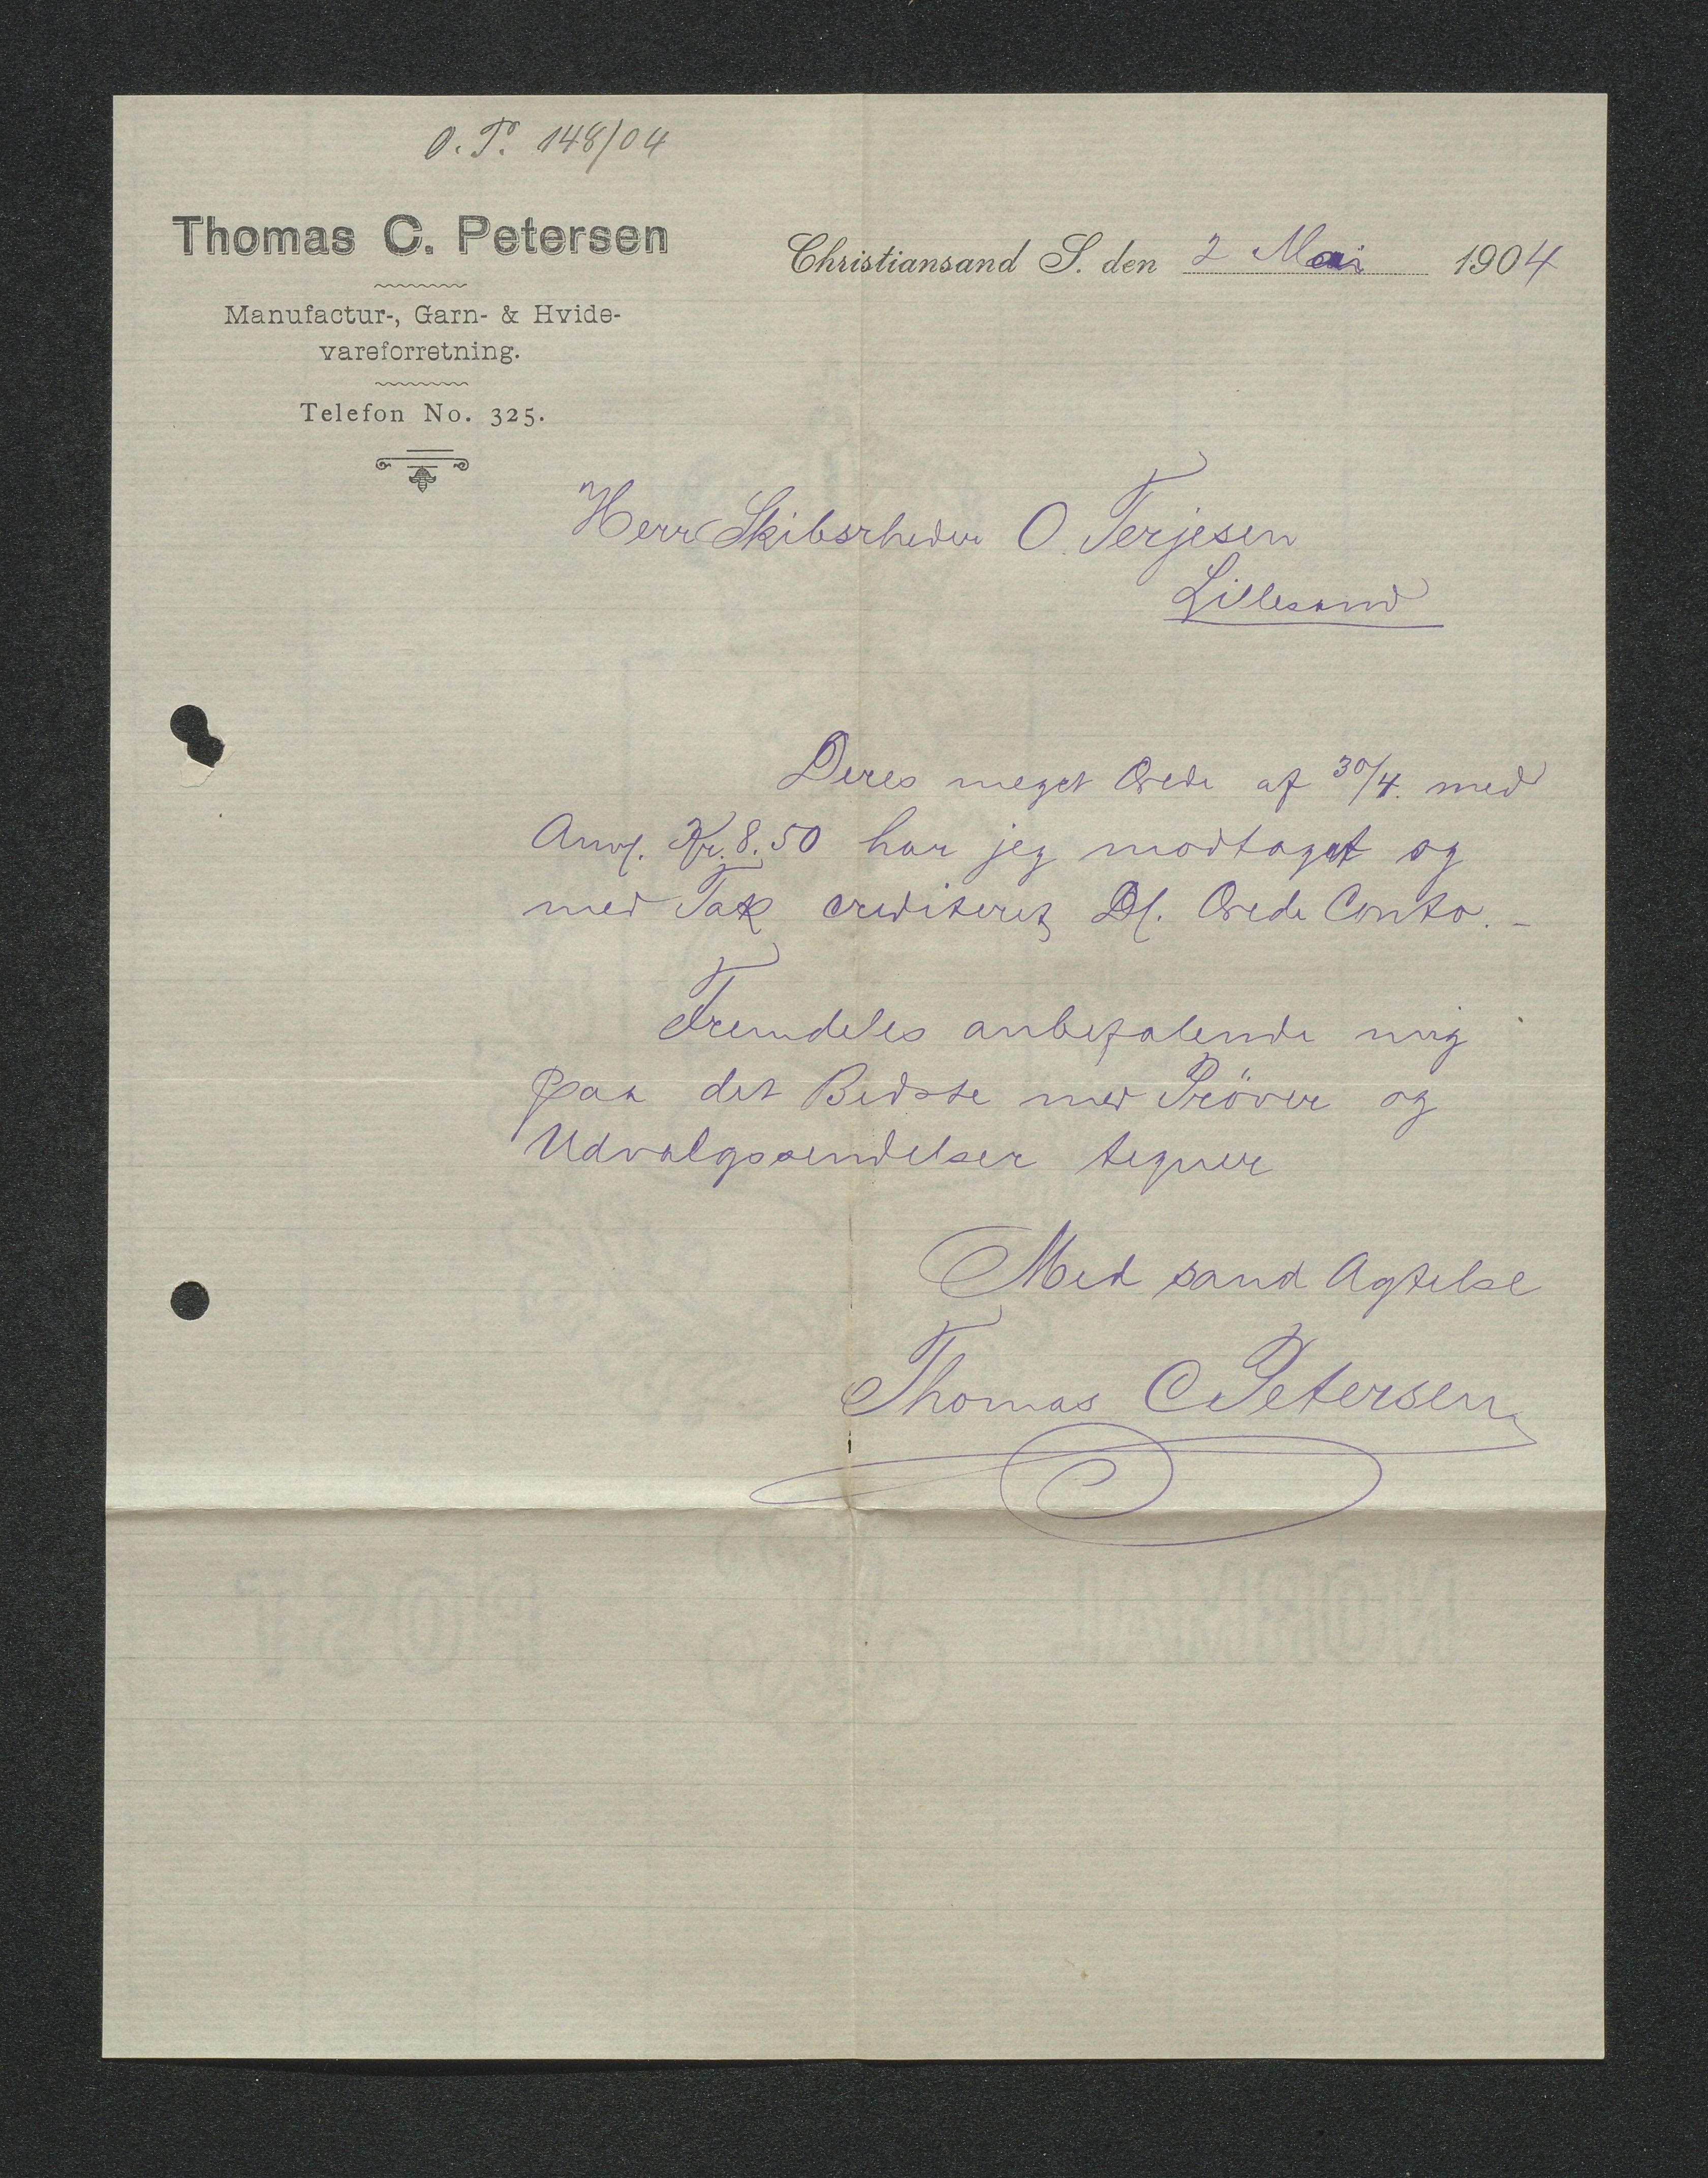 O. T. 148/04
Thomas C. Petersen
Christiansand S. den 2 Mai 1904
Manufactur-, Garn- & Hvide-
vareforretning.
Telefon No. 325.
Herr Skibsrheder O. Terjesen
Lillesand
Deres meget Ærede af 30/4. med
Anv. Kr. 8.50 har jeg modtaget og
med Tak crediteret D/. Ærede Conto. -
Fremdeles anbefalende mig
paa det Bedste med Pröver og
Udvalgssendelser tegner
Med sand Agtelse
Thomas C Petersen
NORMAL POST